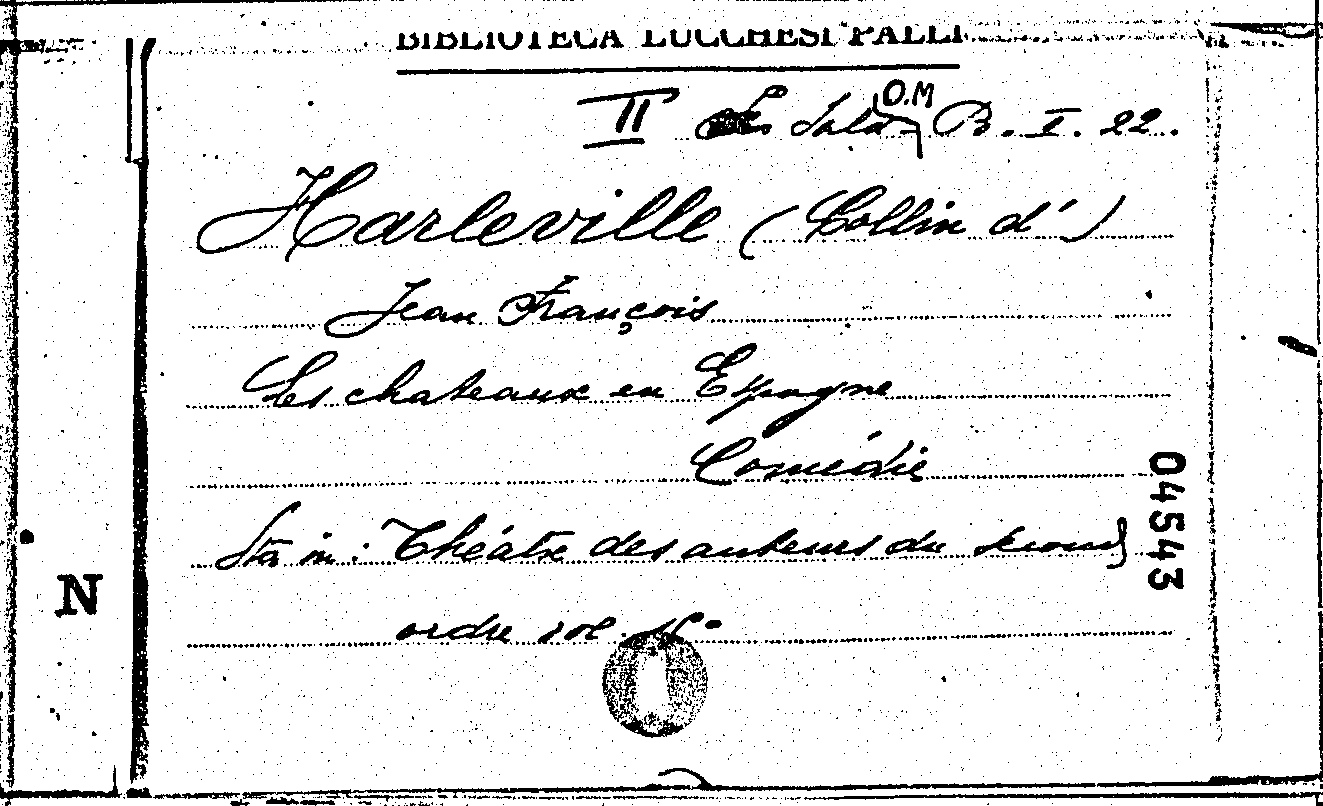 BIBLIOTECA LUCCHESI PALLI
II Sala O.M B. I. 22.
Harleville (Collin d')
Jean François
Les chateaux en Espagne
Comédie
Sta in: Théatre des auteurs du second
ordre vol.
04543
N